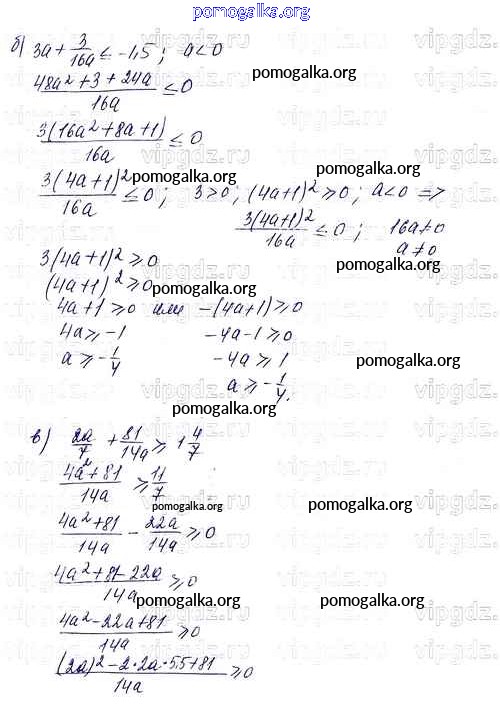 pomogalka.org
б) 3a + 3/16a ≤ -1,5 ; a<0
(48a² + 3 + 24a)/16a ≤ 0
pomogalka.org
3(16a² + 8a + 1)/16a ≤ 0
pomogalka.org
3(4a+1)²/16a ≤ 0 ; 3>0 ; (4a+1)² ≥ 0 ; a<0 =>
3(4a+1)²/16a ≤ 0 ; 16a≠0
a≠0
3(4a+1)² ≥ 0
pomogalka.org
(4a+1)² ≥ 0
4a+1 ≥ 0 или -(4a+1) ≥ 0
4a ≥ -1 -4a-1 ≥ 0
a ≥ -1/4 -4a ≥ 1
pomogalka.org
a ≥ -1/4.
pomogalka.org
в) 2a/7 + 81/14a ≥ 1 4/7
(4a² + 81)/14a ≥ 11/7
pomogalka.org
pomogalka.org
(4a² + 81)/14a - 22a/14a ≥ 0
(4a² + 81 - 22a)/14a ≥ 0
pomogalka.org pomogalka.org
(4a² - 22a + 81)/14a ≥ 0
((2a)² - 2·2a·5,5 + 81)/14a ≥ 0
vipgdz.ru